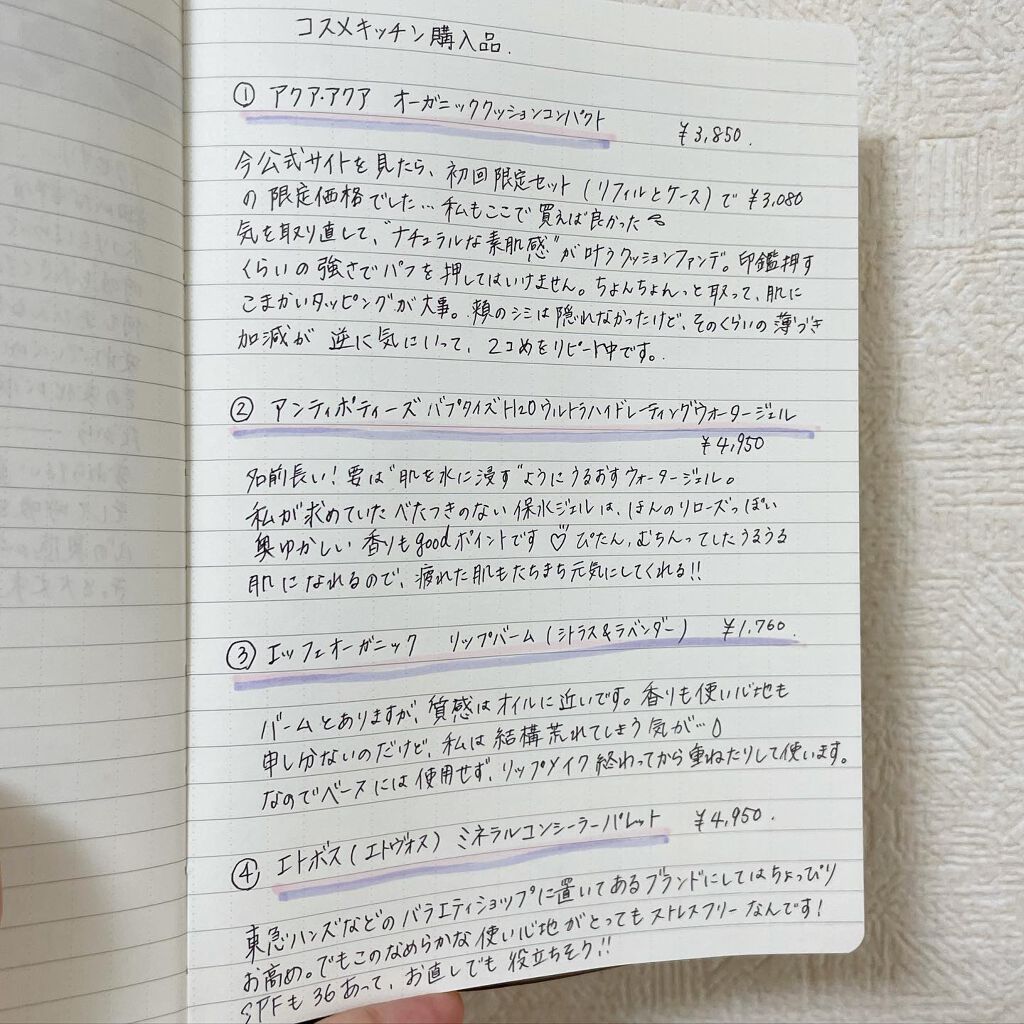 コスメキッチン購入品.
① アクア・アクア オーガニッククッションコンパクト
¥3,850.
今公式サイトを見たら、初回限定セット(リフィルとケース)で ¥3,080
の限定価格でした…私もここで買えば良かった
気を取り直して、"ナチュラルな素肌感"が叶うクッションファンデ。印鑑押す
くらいの強さでパフを押してはいけません。ちょんちょんっと取って、肌に
こまかいタッピングが大事。頬のシミは隠れなかったけど、そのくらいの薄づき
加減が逆に気にいって、2コめをリピート中です。
② アンティポディーズ バプタイズH2Oウルトラハイドレーティングウォータージェル
¥4,950
名前長い!要は"肌を水に浸す"ようにうるおすウォータージェル。
私が求めていたべたつきのない保水ジェルは、ほんのりローズっぽい
奥ゆかしい香りもgoodポイントです♡ぴたん、むちんってしたうるうる
肌になれるので、疲れた肌もたちまち元気にしてくれる!!
③ エッフェオーガニック リップバーム(シトラス&ラベンダー) ¥1,760.
バームとありますが、質感はオイルに近いです。香りも使い心地も
申し分ないのだけど、私は結構荒れてしまう気が…
なのでベースには使用せず、リップメイク終わってから重ねたりして使います。
④ エトボス(エトヴォス) ミネラルコンシーラーパレット ¥4,950.
東急ハンズなどのバラエティショップに置いてあるブランドにしてはちょっぴり
お高め。でもこのなめらかな使い心地がとってもストレスフリーなんです!
SPFも36あって、お直しでも役立ちそう!!